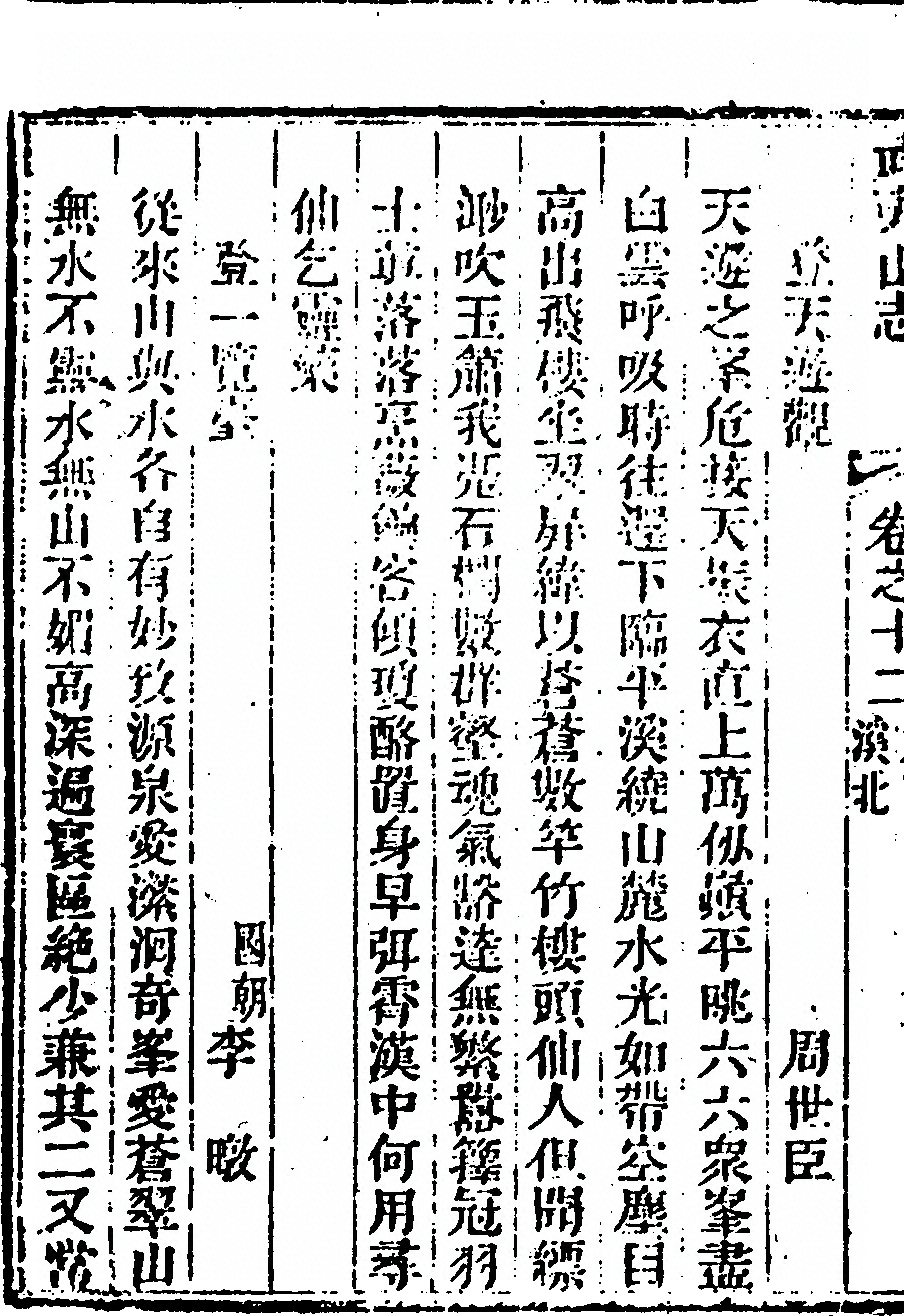 武夷山志 卷之十二 溪北
登天遊觀 周世臣
天遊之峯危接天振衣直上萬仞巔平眺六六眾峯盡
白雲呼吸時往還下臨平溪繞山麓水光如帶空塵目
高出飛樓坐翠屏緯以蒼蒼數竿竹樓頭仙人但聞縹
渺吹玉簫我凭石欄數群壑魂氣豁達無繁囂籜冠羽
士真落落烹薇餉客傾瓊酪置身早弭霄漢中何用尋
仙乞靈藥
登一覽臺 國朝李暾
從來山與水各自有妙致源泉愛瀠洄奇峯愛蒼翠山
無水不靈水無山不媚高深遍寰區絕少兼其二又嘗